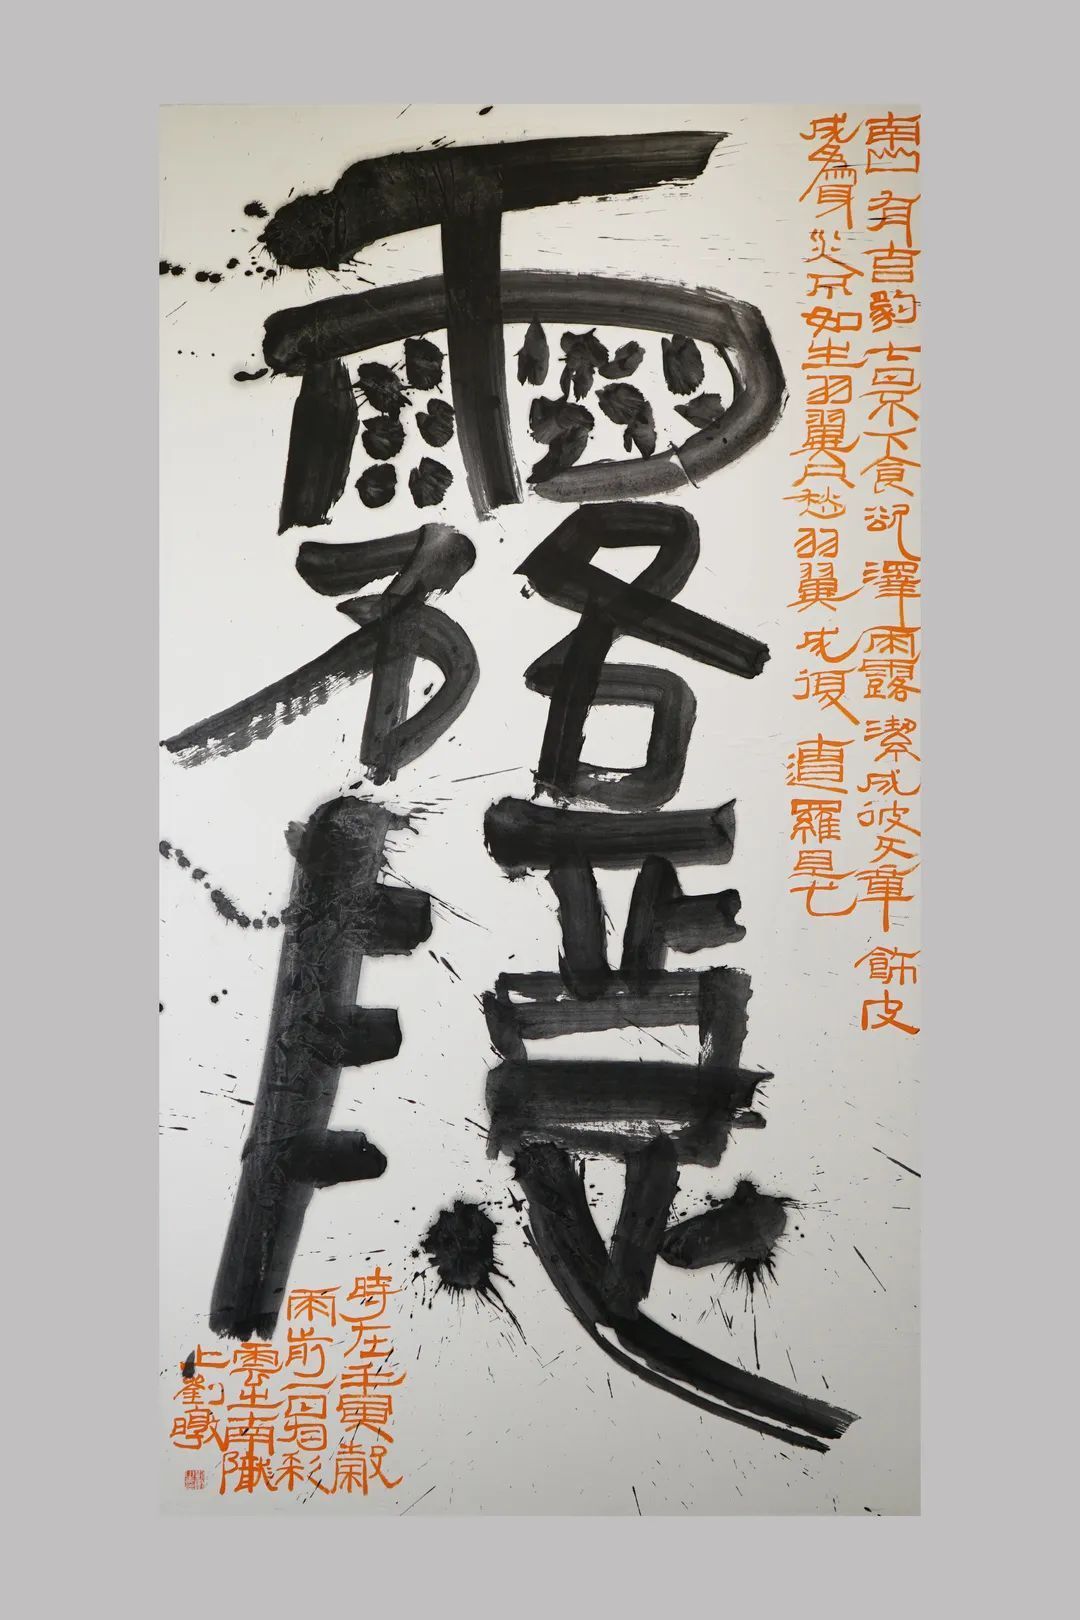 霧隱
南山有玄豹七日不食欲澤雨露潔成彼文章飾皮
成為身災不如生羽翼只愁羽翼成復遭羅且弋
時在壬寅穀
雨前一日彩
雲之南
上劉暾